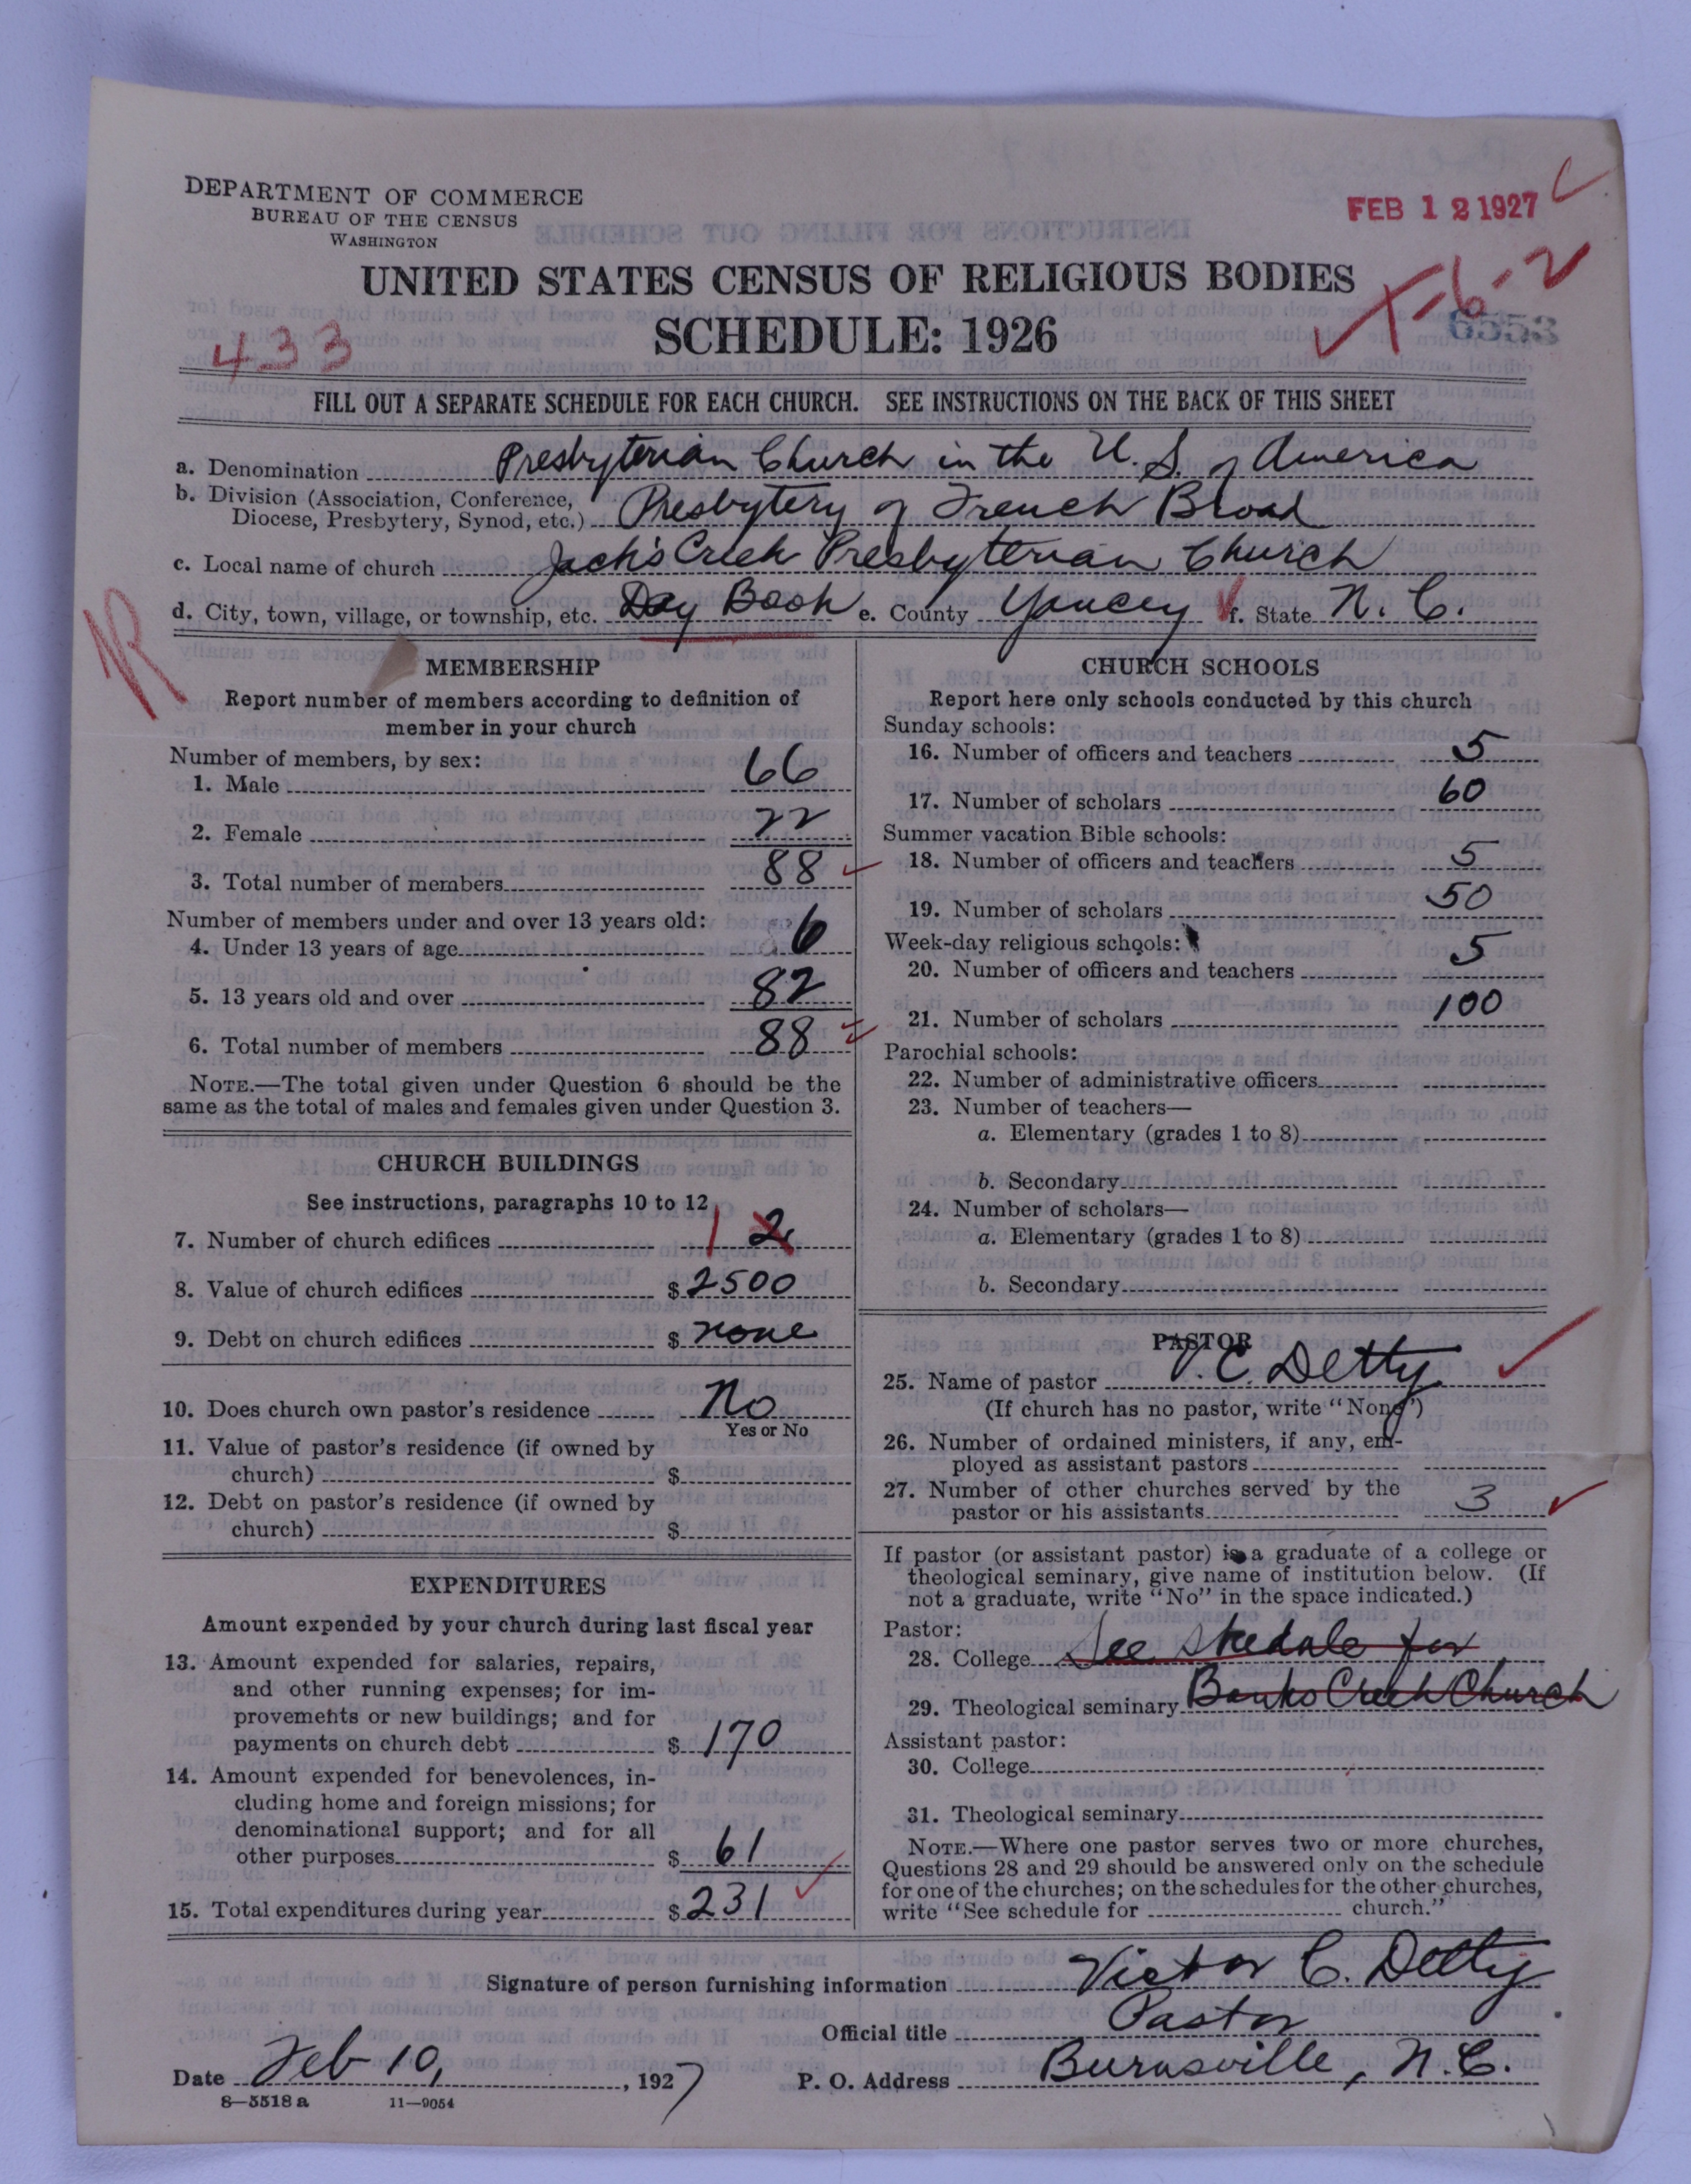 DEPARTMENT OF COMMERCE
BUREAU OF THE CENSUS
WASHINGTON
FEB 12 1927
UNITED STATES CENSUS OF RELIGIOUS BODIES
SCHEDULE: 1926
433
T-6-2
6553
FILL OUT A SEPARATE SCHEDULE FOR EACH CHURCH. SEE INSTRUCTIONS ON THE BACK OF THIS SHEET
a. Denomination Presbyterian Church in the U. S. of America
b. Division (Association, Conference, Diocese, Presbytery, Synod, etc.) Presbytery of French Broad
c. Local name of church Jack's Creek Presbyterian Church
d. City, town, village, or township, etc. Day Book e. County Yancey f. State N. C.
MEMBERSHIP
Report number of members according to definition of
member in your church
Number of members, by sex:
1. Male 66
2. Female 22
3. Total number of members 88
Number of members under and over 13 years old:
4. Under 13 years of age 6
5. 13 years old and over 82
6. Total number of members 88
NOTE.—The total given under Question 6 should be the
same as the total of males and females given under Question 3.
CHURCH BUILDINGS
See instructions, paragraphs 10 to 12
7. Number of church edifices 1 2
8. Value of church edifices $ 2500
9. Debt on church edifices $ none
10. Does church own pastor's residence No
Yes or No
11. Value of pastor's residence (if owned by
church) $
12. Debt on pastor's residence (if owned by
church) $
EXPENDITURES
Amount expended by your church during last fiscal year
13. Amount expended for salaries, repairs,
and other running expenses; for im-
provements or new buildings; and for
payments on church debt $ 170
14. Amount expended for benevolences, in-
cluding home and foreign missions; for
denominational support; and for all
other purposes $ 61
15. Total expenditures during year $ 231
CHURCH SCHOOLS
Report here only schools conducted by this church
Sunday schools:
16. Number of officers and teachers 5
17. Number of scholars 60
Summer vacation Bible schools:
18. Number of officers and teachers 5
19. Number of scholars 50
Week-day religious schools:
20. Number of officers and teachers 5
21. Number of scholars 100
Parochial schools:
22. Number of administrative officers
23. Number of teachers—
a. Elementary (grades 1 to 8)
b. Secondary
24. Number of scholars—
a. Elementary (grades 1 to 8)
b. Secondary
PASTOR
25. Name of pastor V. C. Detty
(If church has no pastor, write "None")
26. Number of ordained ministers, if any, em-
ployed as assistant pastors
27. Number of other churches served by the
pastor or his assistants 3
If pastor (or assistant pastor) is a graduate of a college or
theological seminary, give name of institution below. (If
not a graduate, write "No" in the space indicated.)
Pastor:
28. College See Skedale for
29. Theological seminary Banks Creek Church
Assistant pastor:
30. College
31. Theological seminary
NOTE.—Where one pastor serves two or more churches,
Questions 28 and 29 should be answered only on the schedule
for one of the churches; on the schedules for the other churches,
write "See schedule for church."
Signature of person furnishing information Victor C. Detty
Official title Pastor
Date Feb 10, 1927 P. O. Address Burnsville, N.C.
8-5518 a 11-9054